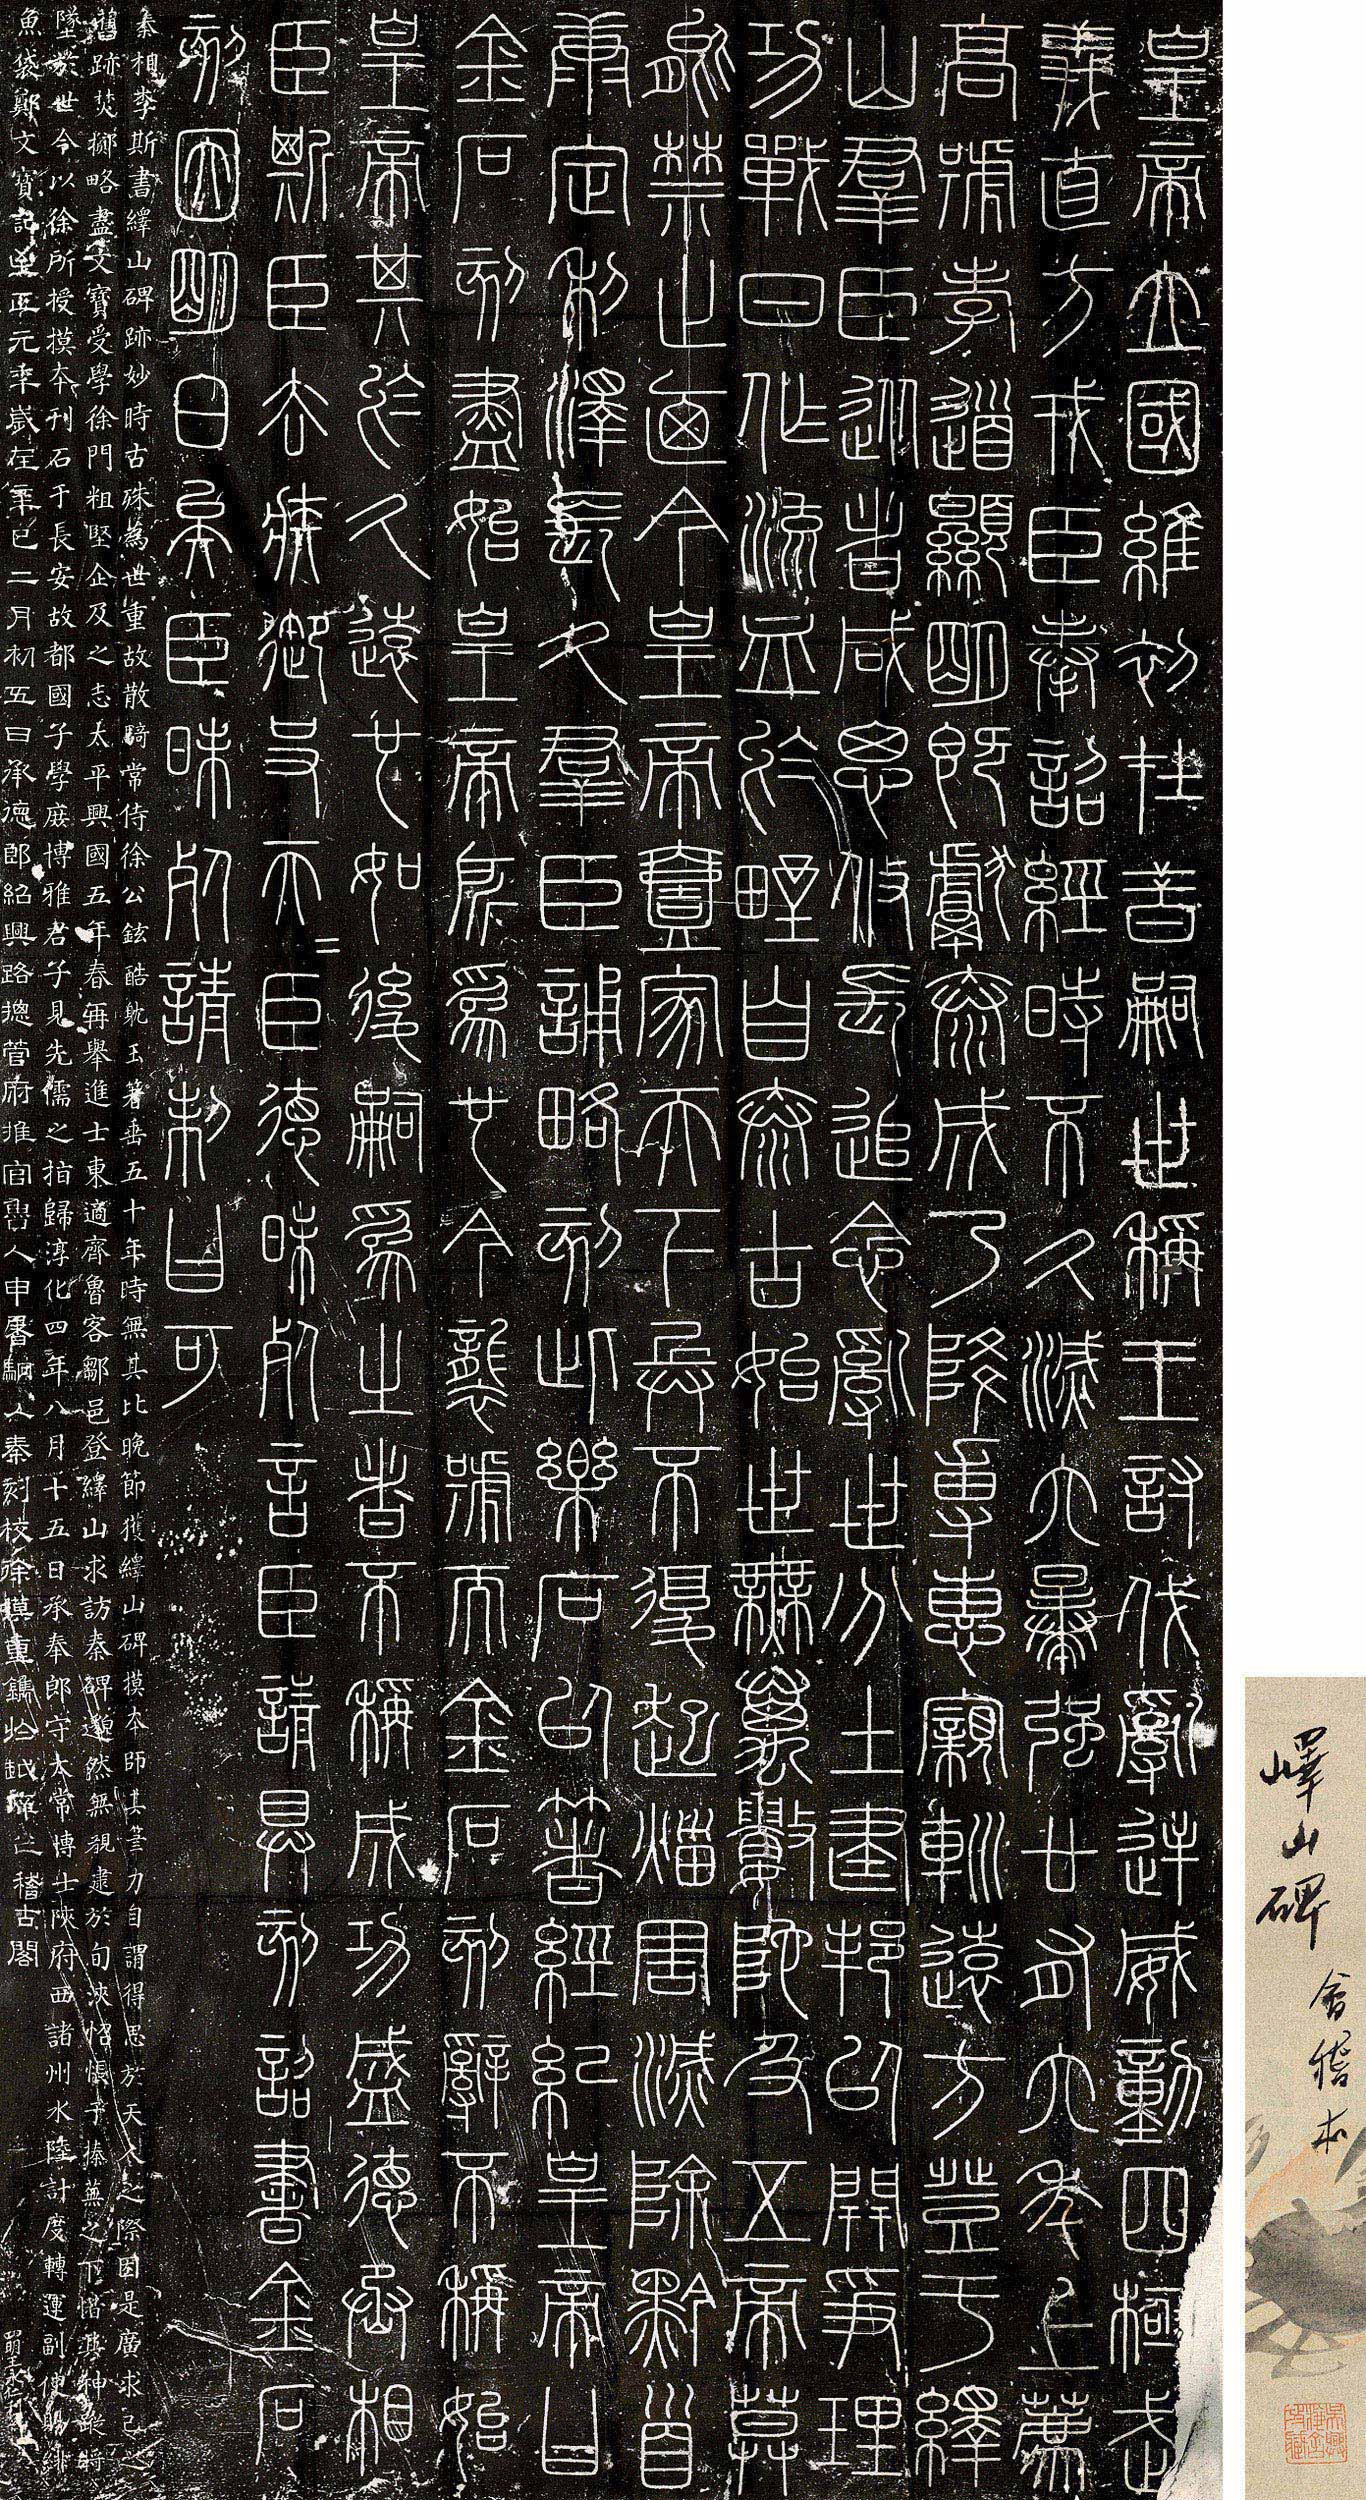 嶧山碑
會稽本
皇帝立國維初在昔嗣世稱王討伐亂逆威動四極武
義直方戎臣奉詔經時不久滅六暴強廿有六年上薦
高號孝道顯明既獻泰成乃降專惠親巡遠方登于繹
山羣臣從者咸思攸長追念亂世分土建邦以開爭理
功戰日作流血於野自泰古始世無萬數陀及五帝莫
能禁止廼今皇帝壹家天下兵不復起烖害滅除黔首
康定利澤長久羣臣誦略刻此樂石以著經紀皇帝曰
金石刻盡始皇帝所為也今襲號而金石刻辭不稱始
皇帝其於久遠也如後嗣為之者不稱成功盛德丞相
臣斯臣去疾御史夫=臣德昧死言臣請具刻詔書金石
刻因明白矣臣昧死請制曰可
秦相李斯書繹山碑跡妙時古殊為世重故散騎常侍徐公鉉酷躭玉箸垂五十年時無其比晚節獲繹山碑摸本師其筆力自謂得思於天人之際因是廣求己之
舊跡焚擲略盡文寶受學徐門粗堅企及之志太平興國五年春再舉進士東適齊魯客鄒邑登繹山求訪秦碑邈然無覩逮於旬浹怊悵于榛蕪之下惜其神蹤將
墜於世今以徐所授摸本刊石于長安故都國子學庶博雅君子見先儒之指歸淳化四年八月十五日承奉郎守太常博士陝府西諸州水陸計度轉運副使賜緋
魚袋鄭文寶記至正元年歲在辛巳二月初五日承德郎紹興路總管府推官嶧人申屠駉以秦刻校徐摸重鐫于越庠之稽古閣